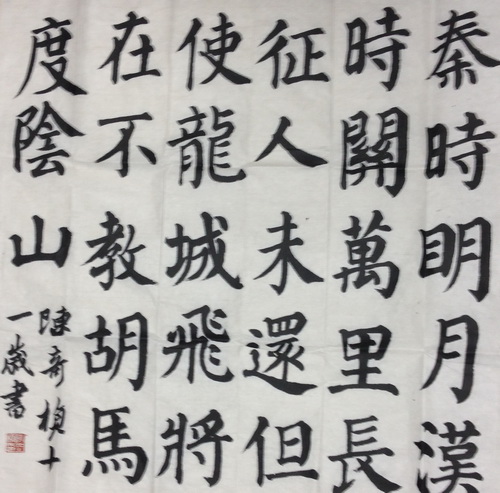 秦時明月漢
時關萬里長
征人未還但
使龍城飛將
在不教胡馬
度陰山
陳奇楨十
一歲書